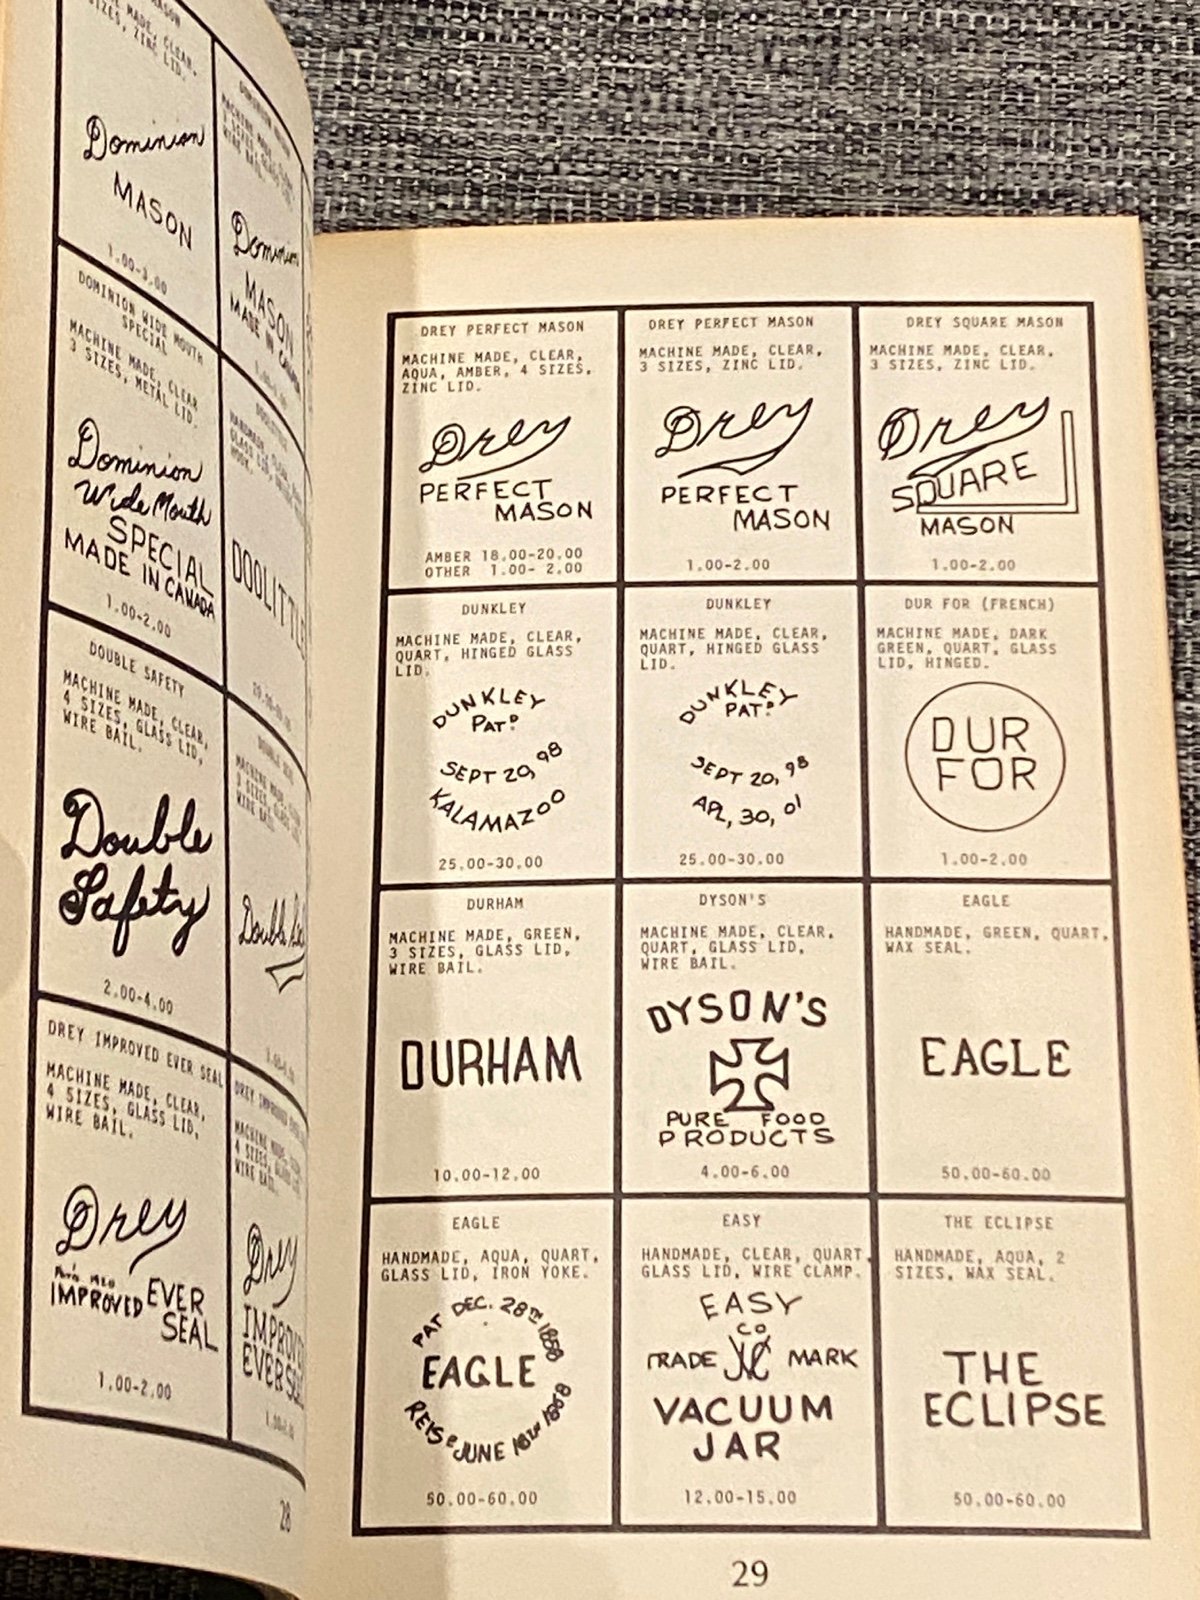 MASON
MACHINE MADE, CLEAR,
SIZES, ZINC LID.
Dominion
MASON
1.00-3.00
Dominion
MASON
MADE IN CANADA
DOMINION WIDE MOUTH
SPECIAL
MACHINE MADE, CLEAR
3 SIZES, METAL LID.
Dominion
Wide Mouth
SPECIAL
MADE IN CANADA
1.00-2.00
DOOLITTLE
DOUBLE SAFETY
MACHINE MADE, CLEAR,
4 SIZES, GLASS LID,
WIRE BAIL.
Double
Safety
2.00-4.00
Double
DREY IMPROVED EVER SEAL
MACHINE MADE, CLEAR,
4 SIZES, GLASS LID,
WIRE BAIL.
Drey
IMPROVED EVER
SEAL
1.00-2.00
Drey
28
DREY PERFECT MASON
MACHINE MADE, CLEAR,
AQUA, AMBER, 4 SIZES,
ZINC LID.
Drey
PERFECT
MASON
AMBER 18.00-20.00
OTHER 1.00- 2.00
DREY PERFECT MASON
MACHINE MADE, CLEAR,
3 SIZES, ZINC LID.
Drey
PERFECT
MASON
1.00-2.00
DREY SQUARE MASON
MACHINE MADE, CLEAR,
3 SIZES, ZINC LID.
Drey
SQUARE
MASON
1.00-2.00
DUNKLEY
MACHINE MADE, CLEAR,
QUART, HINGED GLASS
LID.
DUNKLEY
PAT.D
SEPT 20, 98
KALAMAZOO
25.00-30.00
DUNKLEY
MACHINE MADE, CLEAR,
QUART, HINGED GLASS
LID.
DUNKLEY
PAT.D
SEPT 20, 98
APL, 30, 01
25.00-30.00
DUR FOR (FRENCH)
MACHINE MADE, DARK
GREEN, QUART, GLASS
LID, HINGED.
DUR
FOR
1.00-2.00
DURHAM
MACHINE MADE, GREEN,
3 SIZES, GLASS LID,
WIRE BAIL.
DURHAM
10.00-12.00
DYSON'S
MACHINE MADE, CLEAR,
QUART, GLASS LID,
WIRE BAIL.
DYSON'S
PURE FOOD
PRODUCTS
4.00-6.00
EAGLE
HANDMADE, GREEN, QUART,
WAX SEAL.
EAGLE
50.00-60.00
EAGLE
HANDMADE, AQUA, QUART,
GLASS LID, IRON YOKE.
PAT DEC. 28TH 1858
EAGLE
REIS.D JUNE 16TH 1868
50.00-60.00
EASY
HANDMADE, CLEAR, QUART,
GLASS LID, WIRE CLAMP.
EASY
CO
TRADE VJC MARK
VACUUM
JAR
12.00-15.00
THE ECLIPSE
HANDMADE, AQUA, 2
SIZES, WAX SEAL.
THE
ECLIPSE
50.00-60.00
29